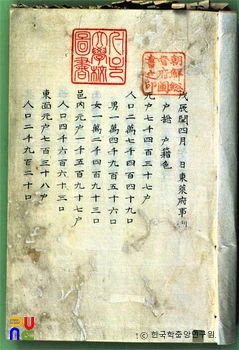 戊辰閏四月 日東萊府事
戶摠 戶籍色
元戶七千四百三十七戶
人口二萬七千四百四十九口
男一萬二千九百五十六口
女一萬四千四百九十三口
邑內元戶一千五百十九戶
人口四千六百六十三口
東面元戶七百三十八戶
人口二千九百二十口
朝鮮總督府圖書之印
© 한국학중앙연구원